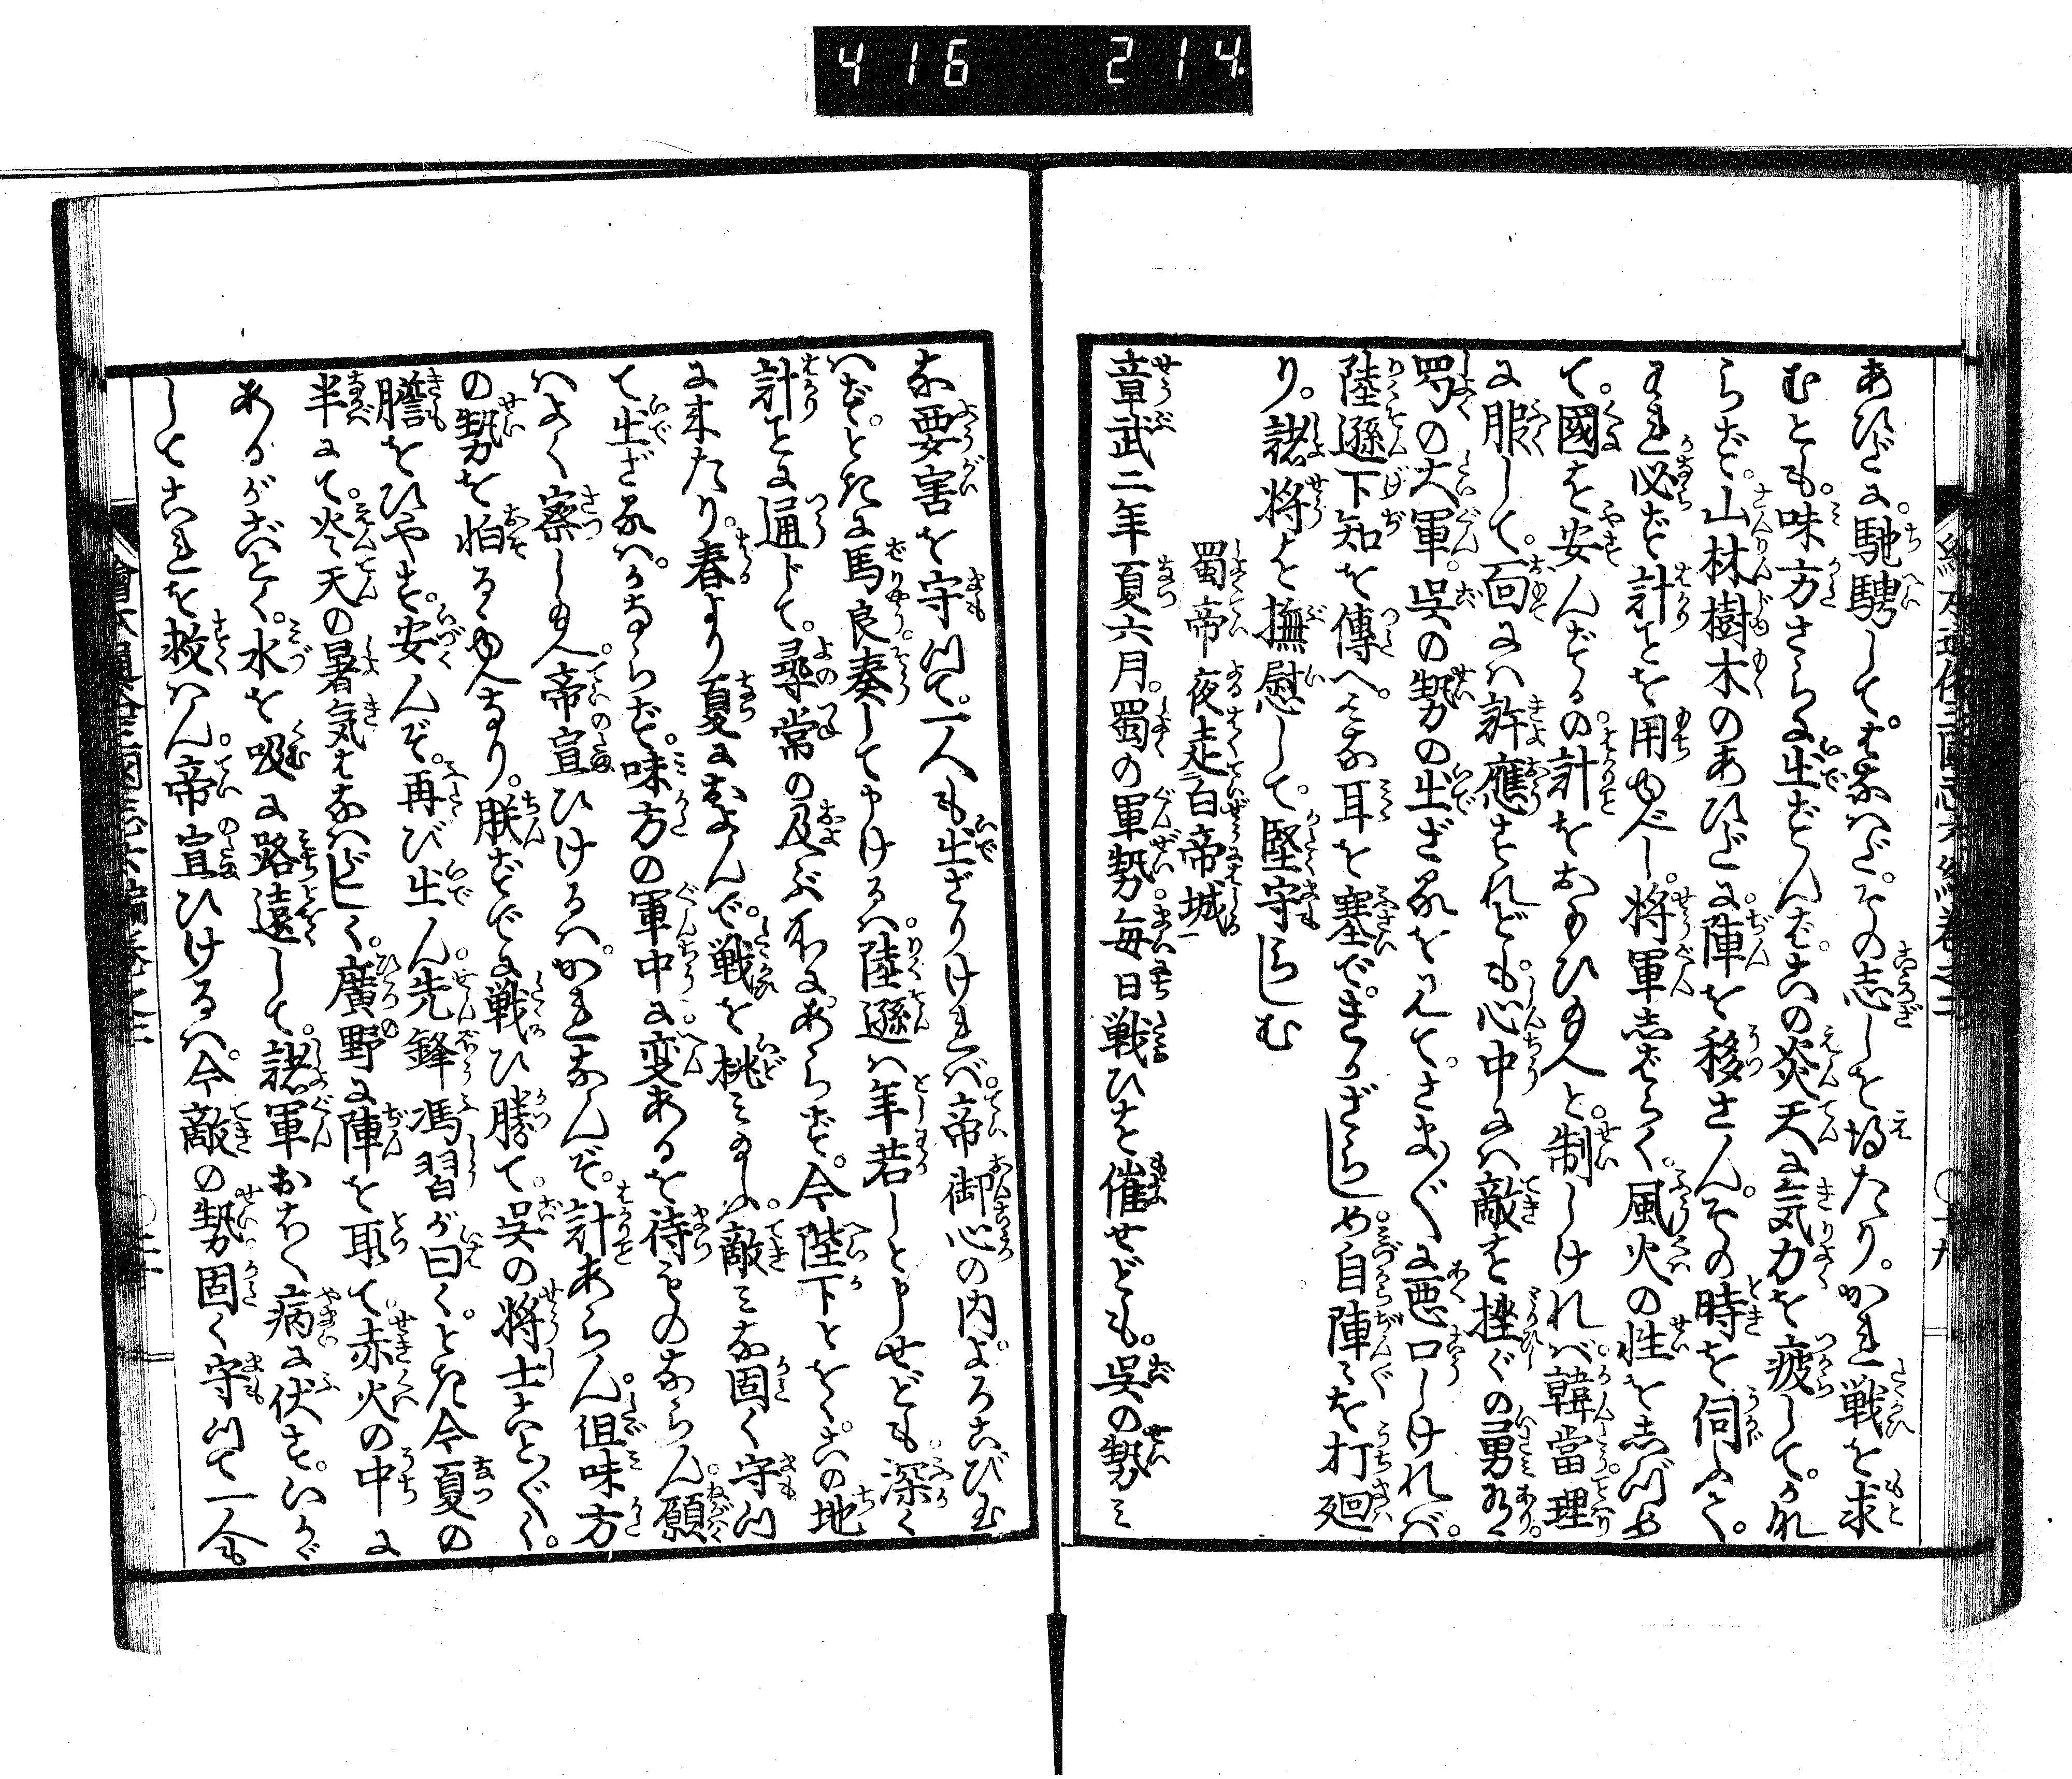 416 214
あひだに。馳騁して。すなはだ。その志しを得たり。かれ戦を求
むとも。味方さらに出ずんば。この炎天に気力を疲して。かな
らず。山林樹木のあひだに。陣を移さん。その時を伺ふて。
われ必ず計ことを用ゆべし。将軍しばらく。風火の性をしづめ
て。國を安んずるの。計をおもひ玉へと。制しければ。韓當理
に服して。面には許應すれども。心中には敵を挫ぐの勇有。
蜀の大軍。呉の勢の出ざるを見て。さまざまに悪口しければ。
陸遜下知を傳へ。みな耳を塞で。きかざらしめ。自陣々を打廻
り。諸将を撫慰して。堅守らしむ
蜀帝夜走白帝城
章武二年夏六月。蜀の軍勢。毎日戦ひを催せども。呉の勢み
な要害を守ツて。一人も出ざりければ。帝御心の内よろこび玉
はず。ときに馬良奏して申けるは。陸遜は年若しと申せども。深く
計ことに通じて。尋常の及ぶ所にあらず。今陛下とをくこの地
に来たり。春より夏におよんで。戦を挑み玉ふ。敵みな固く守ツ
て出ざるは。かならず。味方の軍中に。変あるを待ものならん。願
はよく察し玉へ。帝宣ひけるは。かれなんぞ。計あらん。但味方
の勢を怕るゝゆへなり。朕すでに戦ひ勝て。呉の将士ことごとく。
膽をひやす。安んぞ。再び出ん。先鋒馮習が曰く。とき今夏の
半にて。炎天の暑気はなはだしく。廣野に陣を取て。赤火の中に
あるがごとく。水を吸に路遠して。諸軍おほく病に伏す。いかゞ
してこれを救はん。帝宣ひけるは。今敵の勢固く守ツて一人も